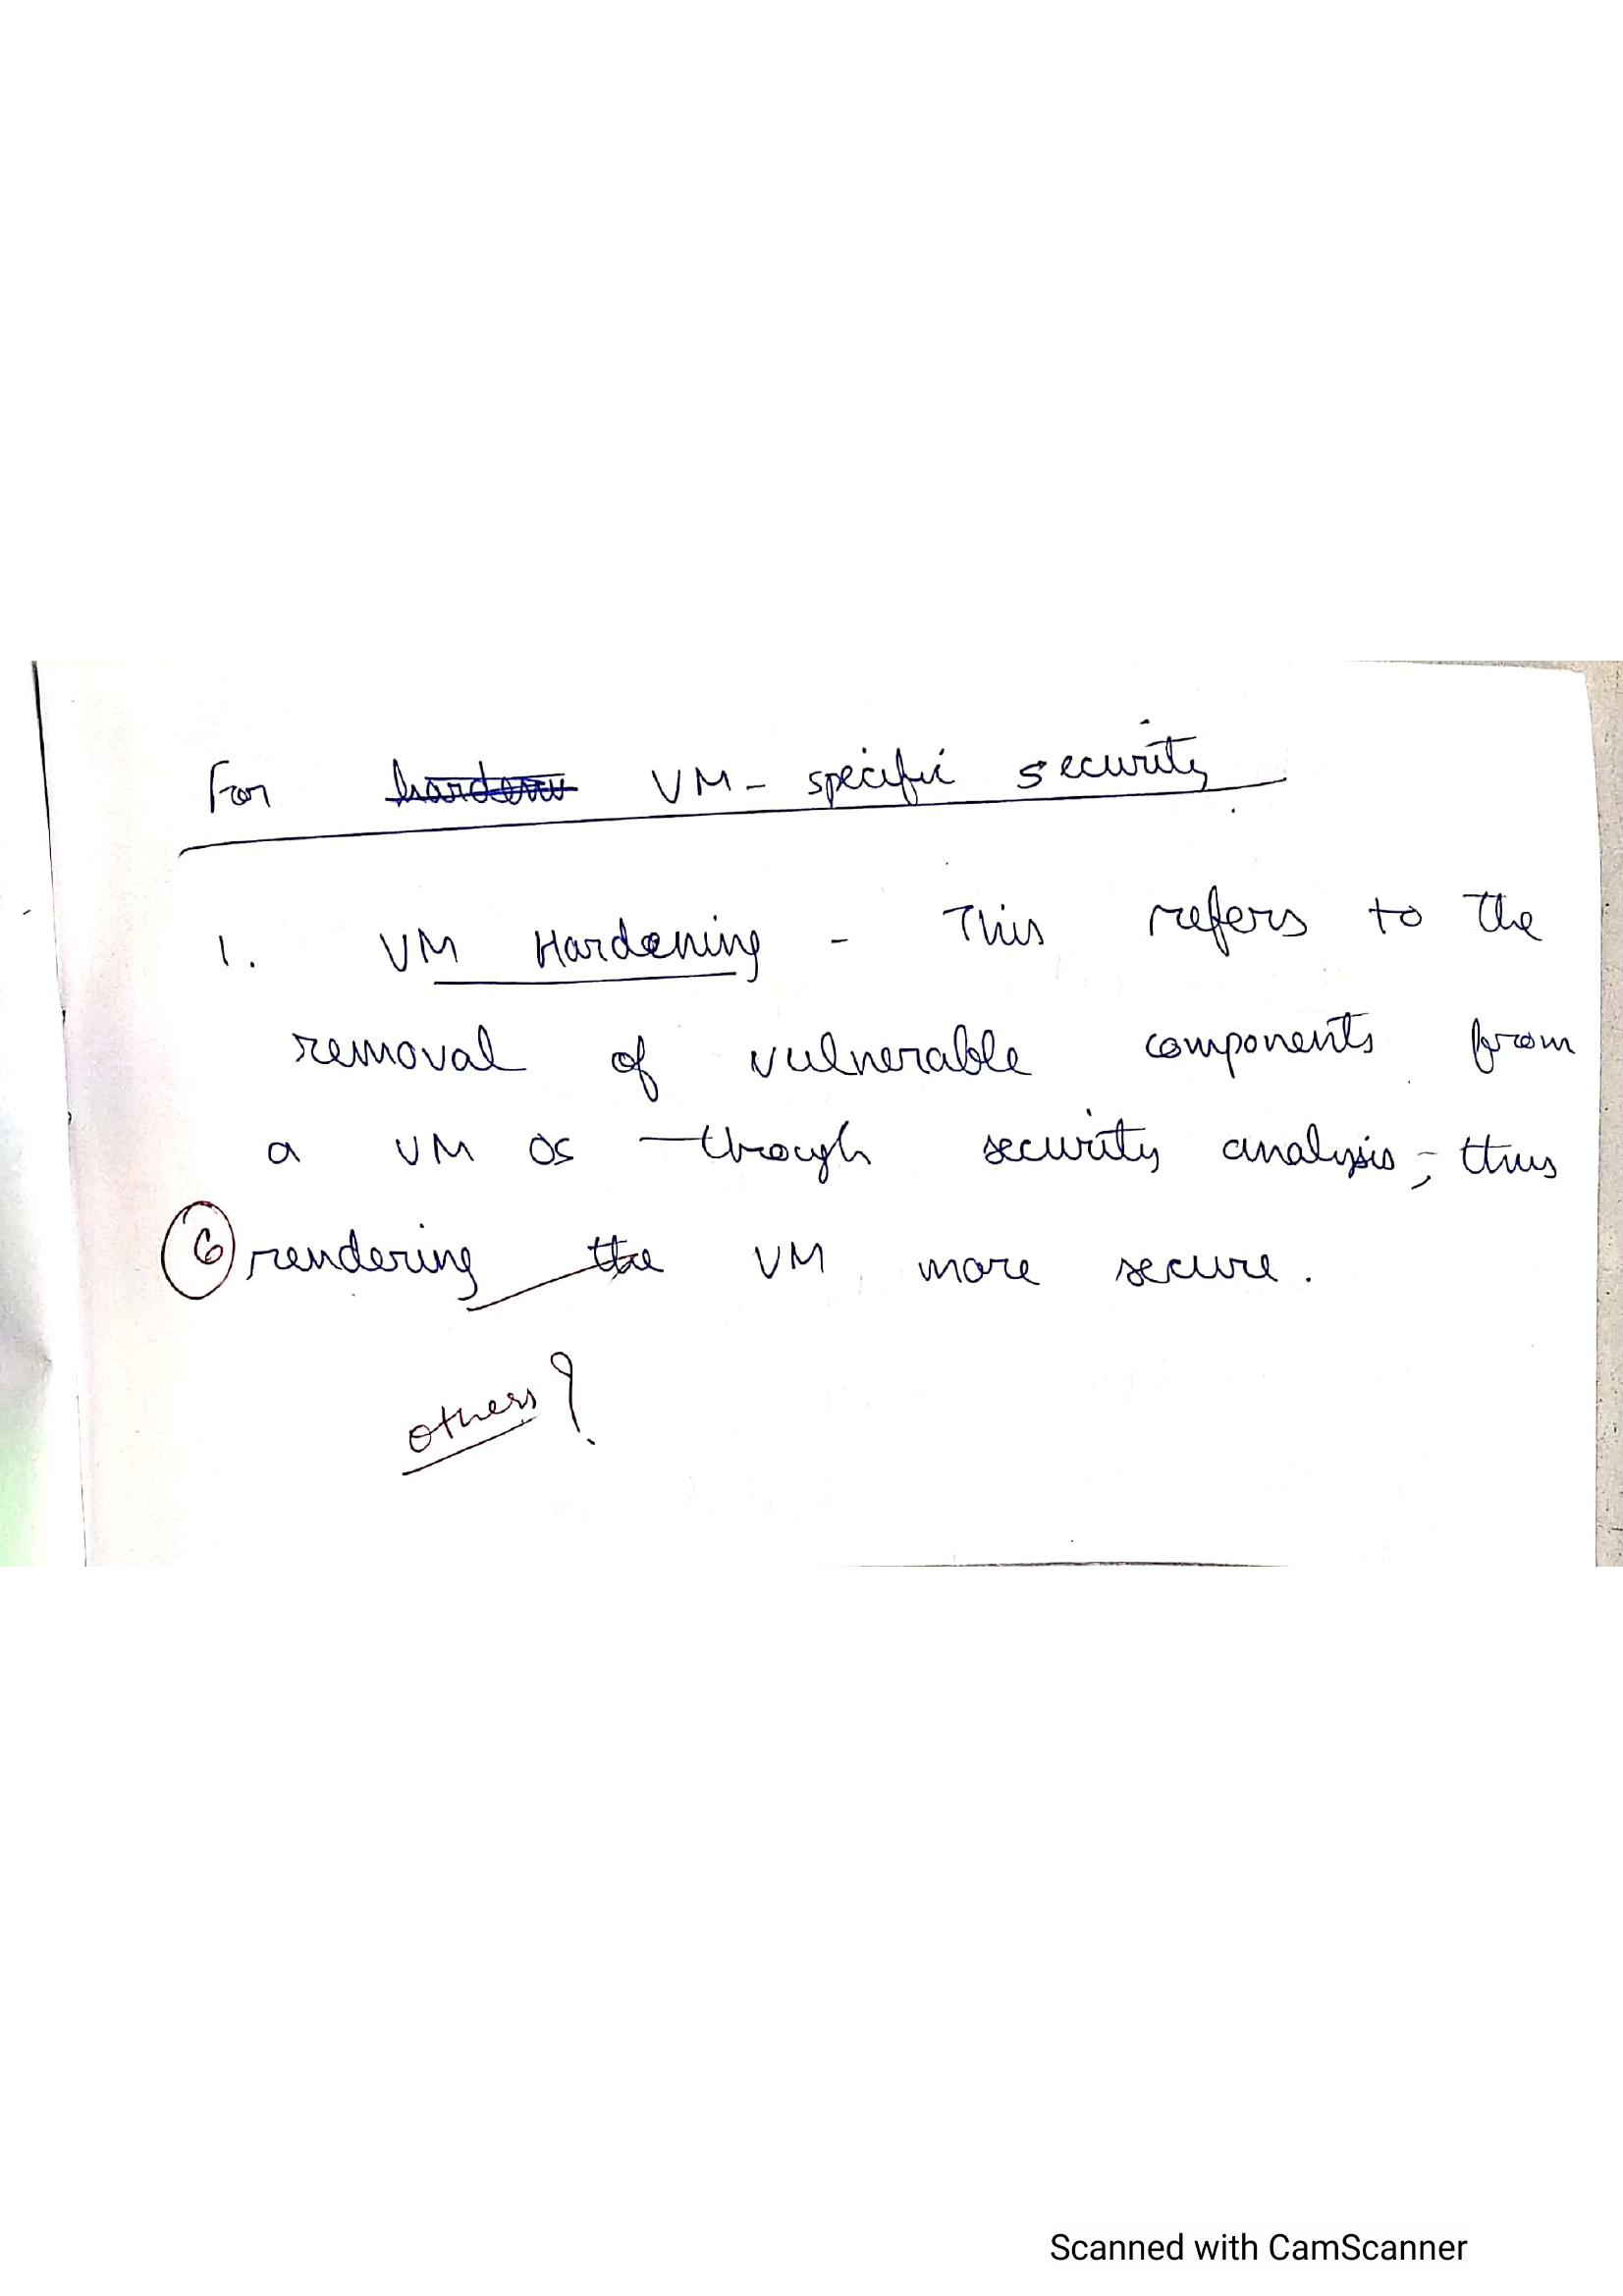 For harden VM- specific security
1. VM Hardening - This refers to the
removal of vulnerable components from
a VM OS through security analysis, thus
6 rendering the VM more secure.
others?
Scanned with CamScanner